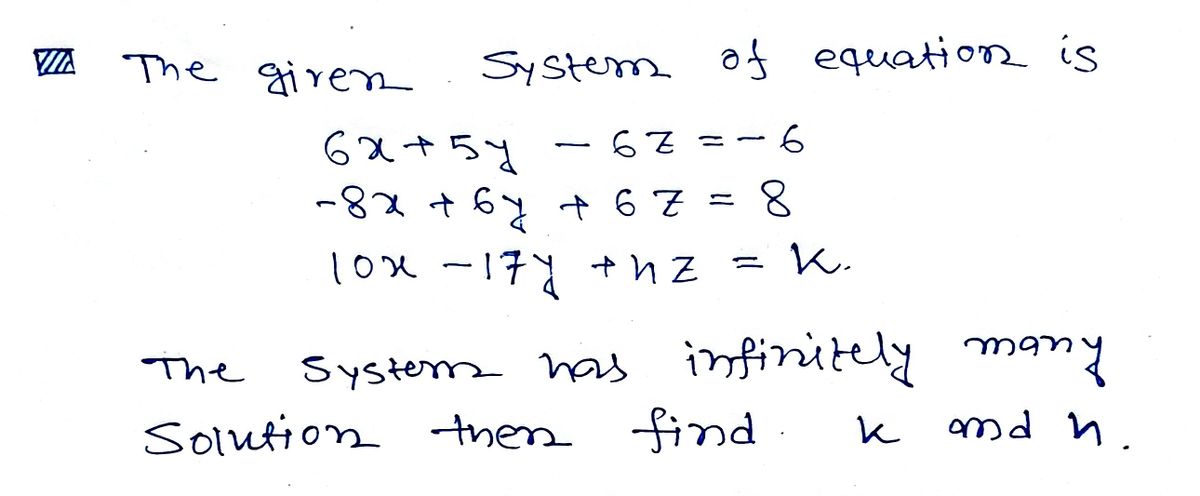 The given System of equation is
6x + 5y - 6z = - 6
-8x + 6y + 6z = 8
10x - 17y + hz = k.
The system has infinitely many
Solution then find k and h.